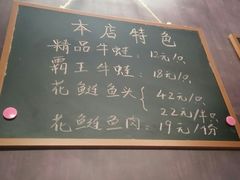 本店特色
精品牛蛙:12元/只
霸王牛蛙:18元/只
花鲢鱼头{42元/只
22元/半只
花鲢鱼肉:19元/份